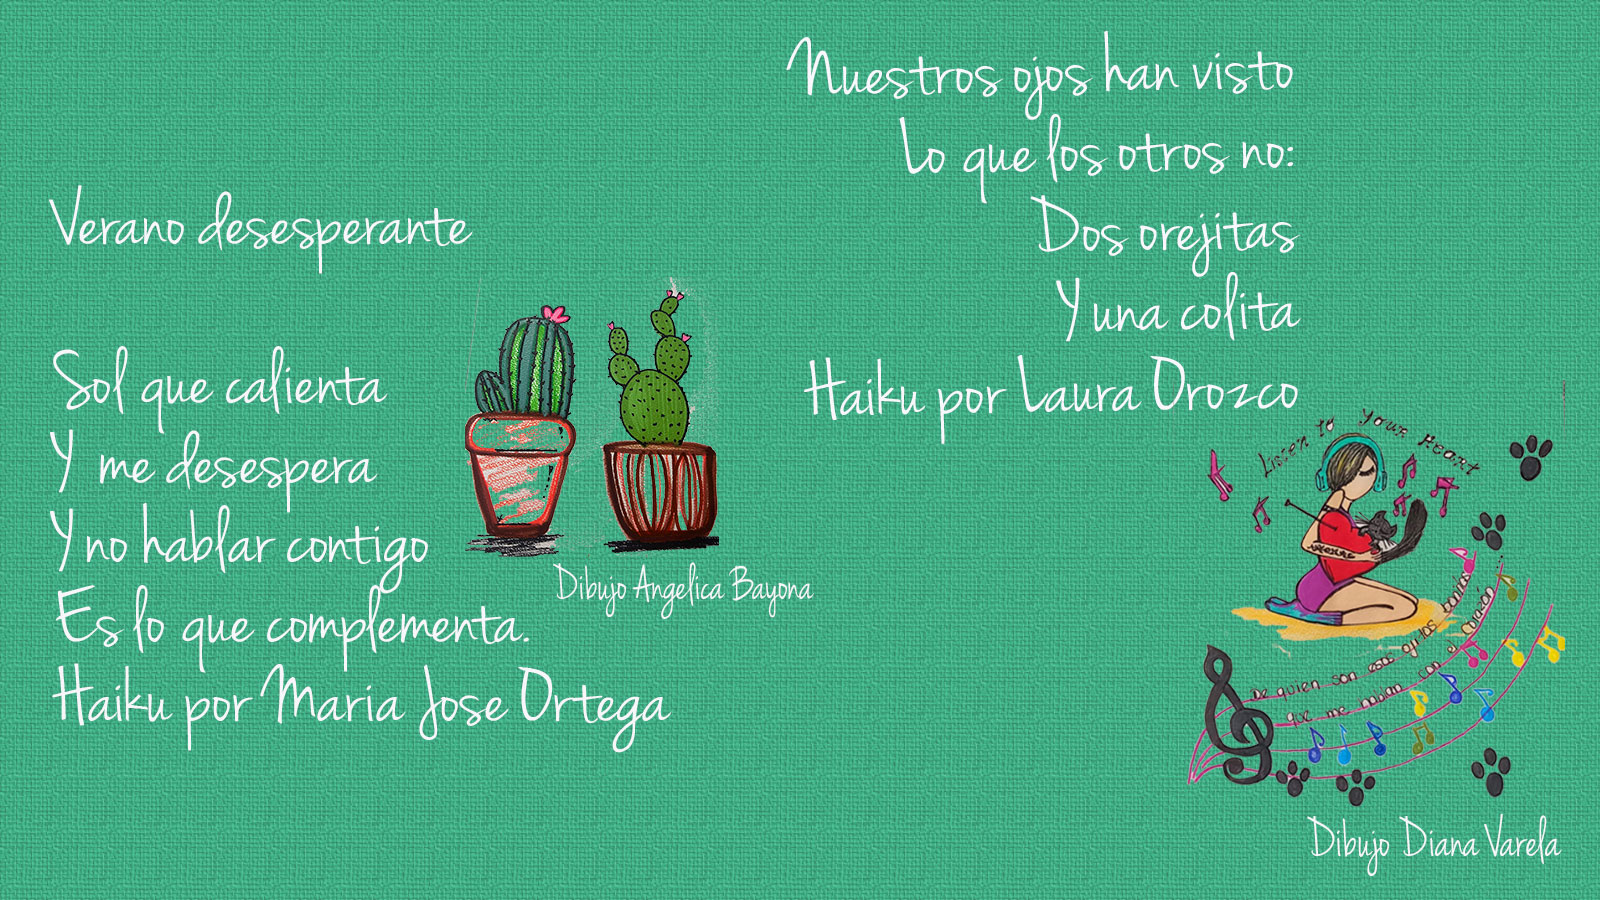 Verano desesperante
Sol que calienta
Y me desespera
Y no hablar contigo
Es lo que complementa.
Haiku por Maria Jose Ortega
Dibujo Angelica Bayona
Nuestros ojos han visto
Lo que los otros no:
Dos orejitas
Y una colita
Haiku por Laura Orozco
Listen to your heart
De quien son esas
que me hablan con el corazón
Dibujo Diana Varela